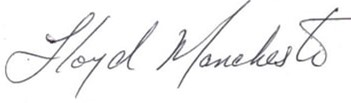 Lloyd Manchester